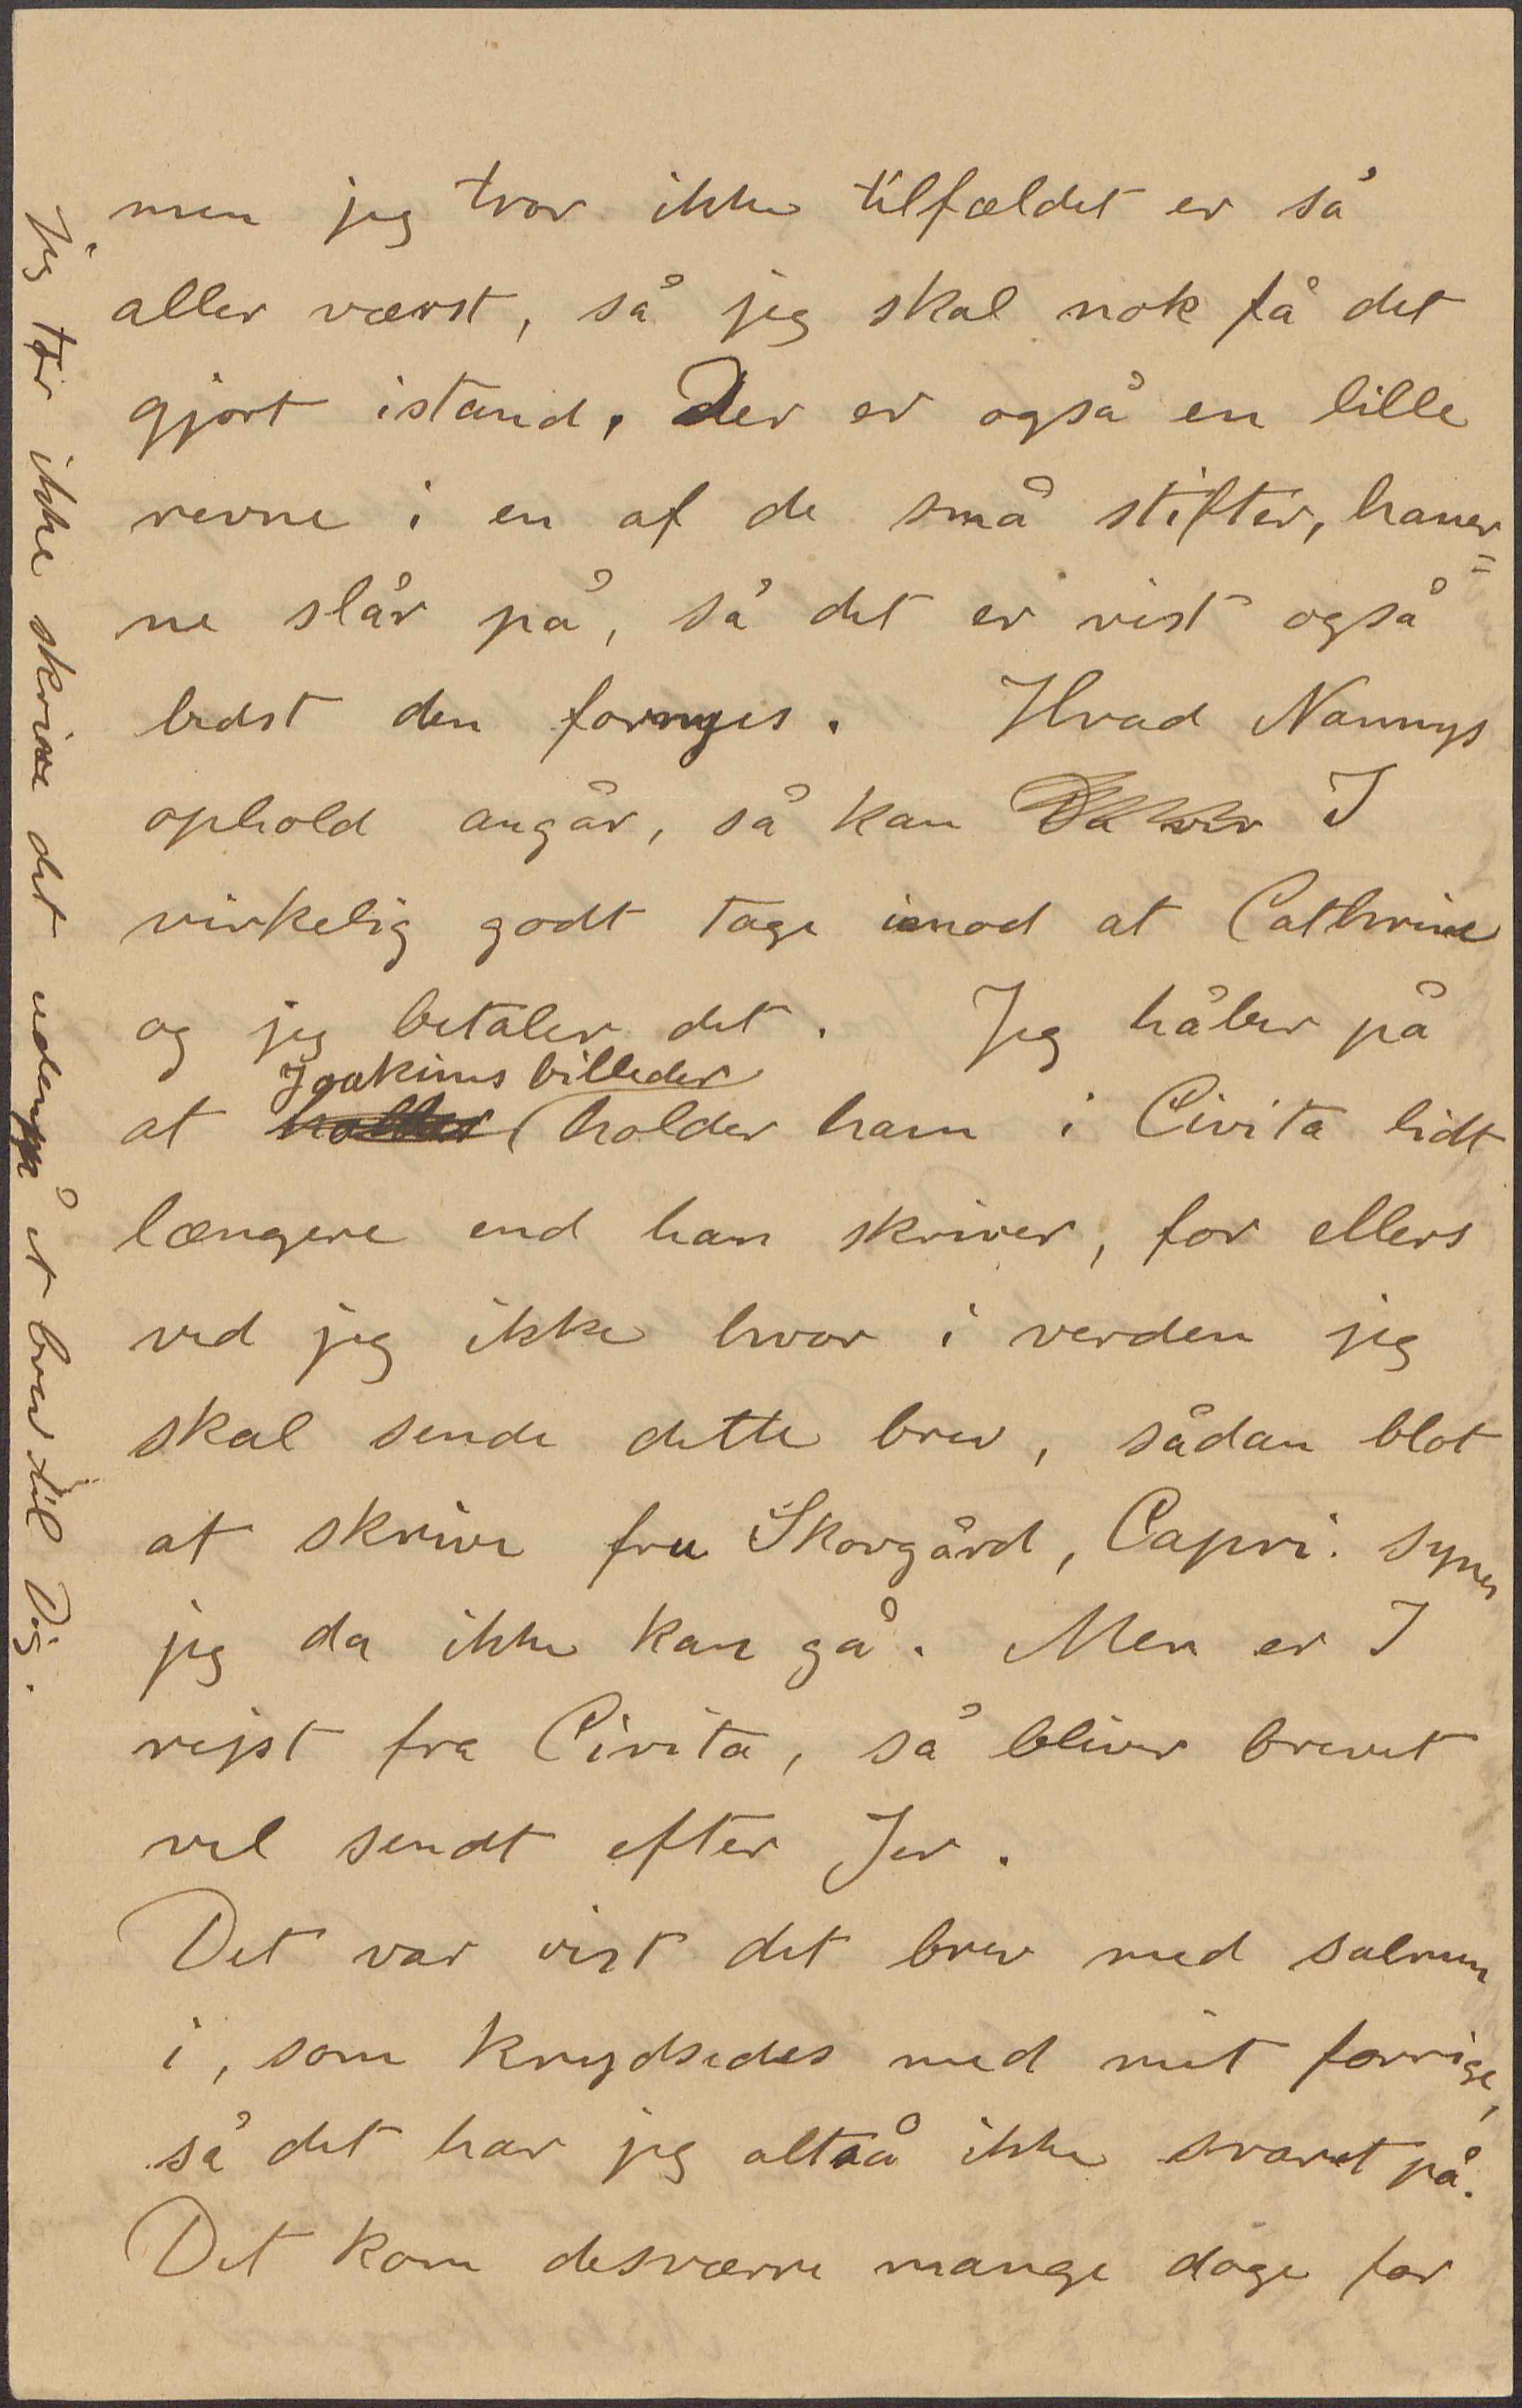 men jeg tror ikke tilfældet er så
aller værst, så jeg skal nok få det
gjort istand. Der er også en lille
revne i en af de små stifter, haner=
ne slår på, så det er vist også
bedst den fornyes. Hvad Nannys
ophold angår, så kan I
virkelig godt tage imod at Cathrine
og jeg betaler det. Jeg håber på
Joakims billeder
at holder holder ham i Civita lidt
længere end han skriver, for ellers
ved jeg ikke hvor i verden jeg
skal sende dette brev, sådan blot
at skrive fru Skovgård, Capri. synes
jeg da ikke kan gå. Men er I
rejst fra Civita, så bliver brevet
vel sendt efter Jer.
Det var vist det brev med salmen
i, som krydsedes med mit forrige,
så det har jeg altså ikke svaret på.
Det kom desværre mange dage for
Jeg tør ikke skrive det udenpå et brev til Dig.